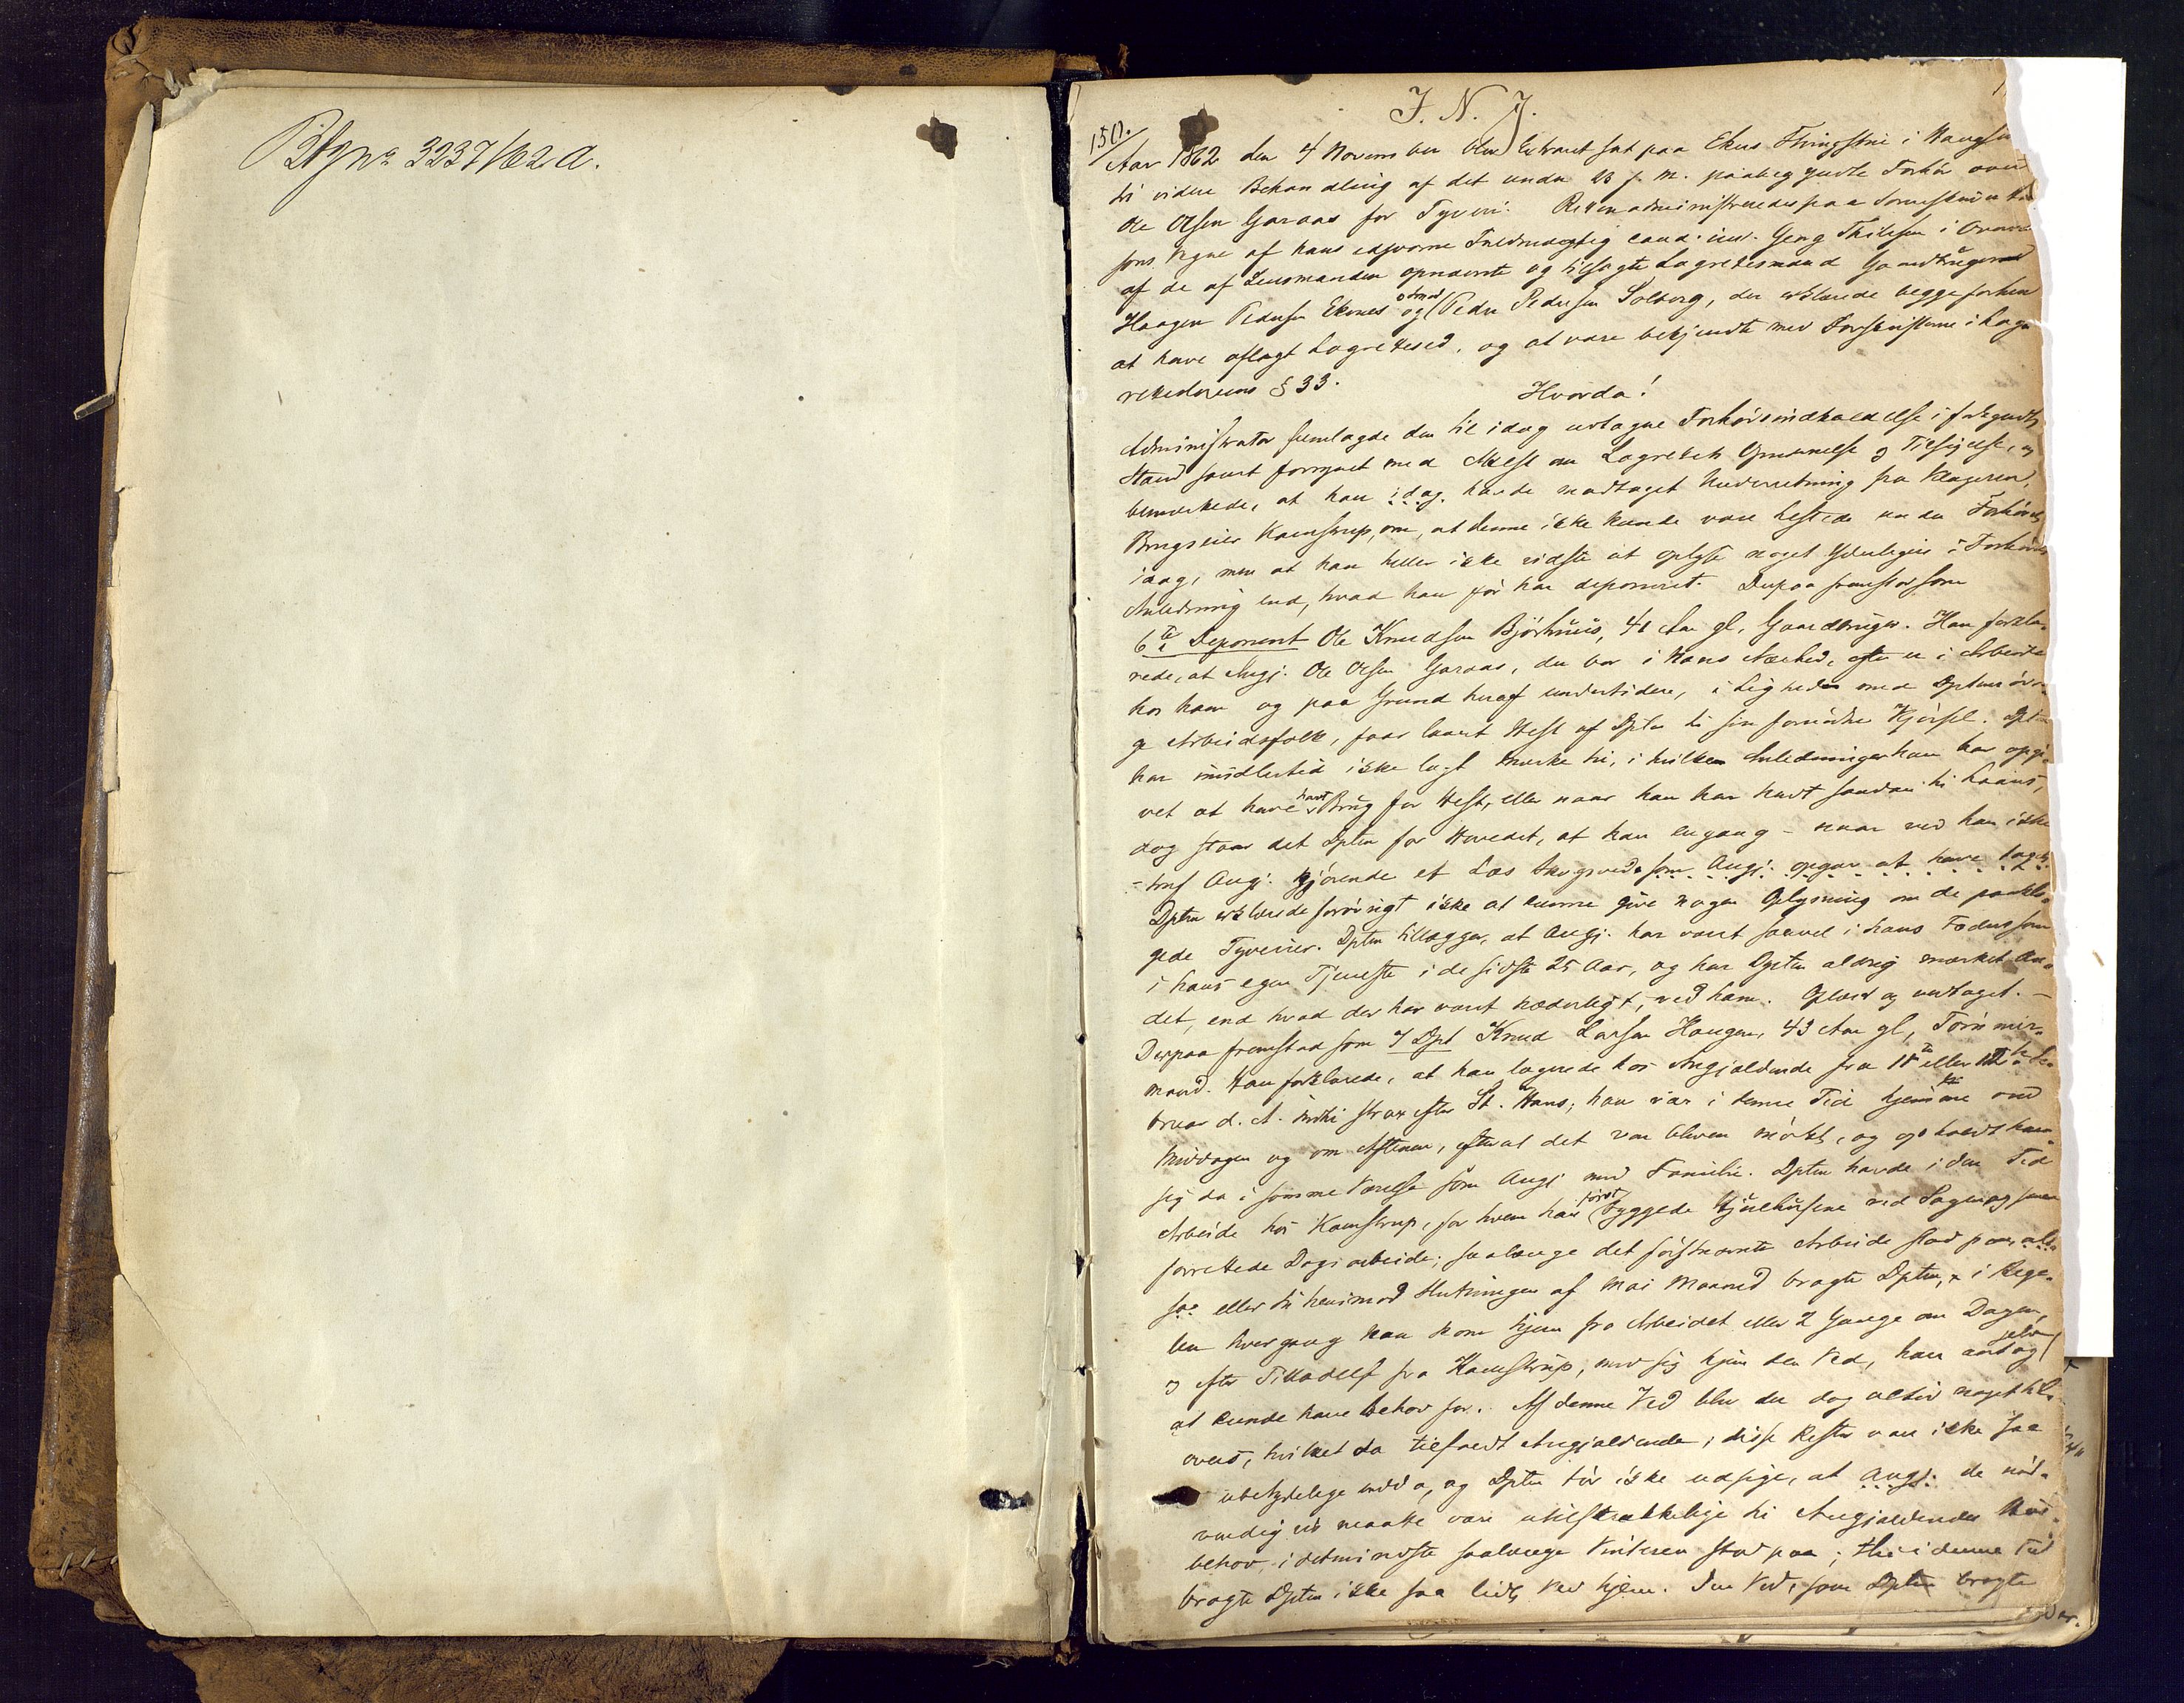 Btgn: 3237/62 a.
J. N. J.
150/
Aar 1862 den 4 November blev Extraret sat paa Ekres Thingstue i
til videre Behandling af det under 23 f. M. paabegyndte Forhør over
Ole Olsen Garaas for Tyveri. Retten administreredes paa Sorenskriver
sons Vegne af hans edsvorne Fuldmægtig cand. jur. Georg i
af de af Lensmanden opnævnte og tilsagte Lagrettesmænd Gaardbruger
Haagen Pedersen Ekornes og Peder Pedersen Solberg, der erklærede begge forhen
at have aflagt Lagrettesed, og at være bekjendte med Forskrifterne i Lag-
rettelovens § 33.
Hvorda!
Administrator fremlagde den til idag udtagne Forhørsindkaldelse i forkyndt
Stand samt forsynet med Attest om Lagrettets Opnævnelse og Tilsigelse, og
bemærkede, at han idag havde modtaget Underretning fra Klageren,
Brugseier Kamstrup, om, at denne ikke kunde være tilstede under Forhøret
idag, men at han heller ikke vidste at oplyse noget Yderligere i Forhørets
Anledning end, hvad han før har deponeret. Derpaa fremstod som
6te Deponent Ole Knudsen Bjørhuus, 41 Aar gl, Gaardbruger. Han forkla-
rede, at Angj. Ole Olsen Garaas, der bor i hans Nærhed, ofte er i Arbeide
hos ham og paa Grund heraf undertiden, i Lighed med Dptens øvri-
ge Arbeidsfolk, faar laant Hest af Dpten til sin fornødne Kjørsel. Dpten
har imidlertid ikke lagt Mærke til, i hvilken Anledninger han har opgi-
vet at have havt Brug for Hest, eller naar han har havt saadan til Laans,
dog staar det Dpten for Hovedet, at han engang - naar ved han ikke
- traf Angj. kjørende et Læs Skogsved som Angj. opgav at have taget.
Dpten erklærede forøvrigt ikke at kunne give nogen Oplysning om de paakla-
gede Tyverier. Dpten tillægger, at Angj. har været saavel i hans Faders som
i hans egen Tjeneste i de sidste 25 Aar, og har Dpten aldrig mærket An-
det, end hvad der har været hæderligt, ved ham. Oplæst og vedtaget. -
Derpaa fremstod som 7 Dpt Knud Larsen Haugen, 43 Aar gl, Tømmer-
mand. Han forklarede, at han logerede hos Angjældende fra 11te eller 12te Fe-
bruar d. A. indtil strax efter St. Hans; han var i denne Tid hjemme om
Middagen og om Aftenen, efterat det var bleven mørkt, og opholdt han
sig da i samme Værelse som Angj med Familie. Dpten havde i den Tid
Arbeide hos Kamstrup, for hvem han først byggede Hjulhusene ved Sagen og siden
forrettede Dagsarbeide; saalænge det førstnævnte Arbeide stod paa, alt-
saa eller til henimod Slutningen af Mai Maaned bragte Dpten, i Rege-
len hvergang han kom hjem fra Arbeidet eller 2 Gange om Dagen,
og efter Tilladelse fra Kamstrup, med sig hjem den Ved, han selv antog
at kunde have Behov for. Af denne Ved blev der dog altid noget til-
overs, hvilket da tilfaldt Angjældende; disse Rester var ikke saa
ubetydelige endda, og Dpten tør ikke udsige, at Angj. de nød-
vendigvis maatte være utilstrækkelige til Angjældendes Huus-
behov, i detmindste saalænge Vinteren stod paa; thi i denne Tid
bragte Dpten ikke saa lidt Ved hjem. Den Ved, som Dpten bragte